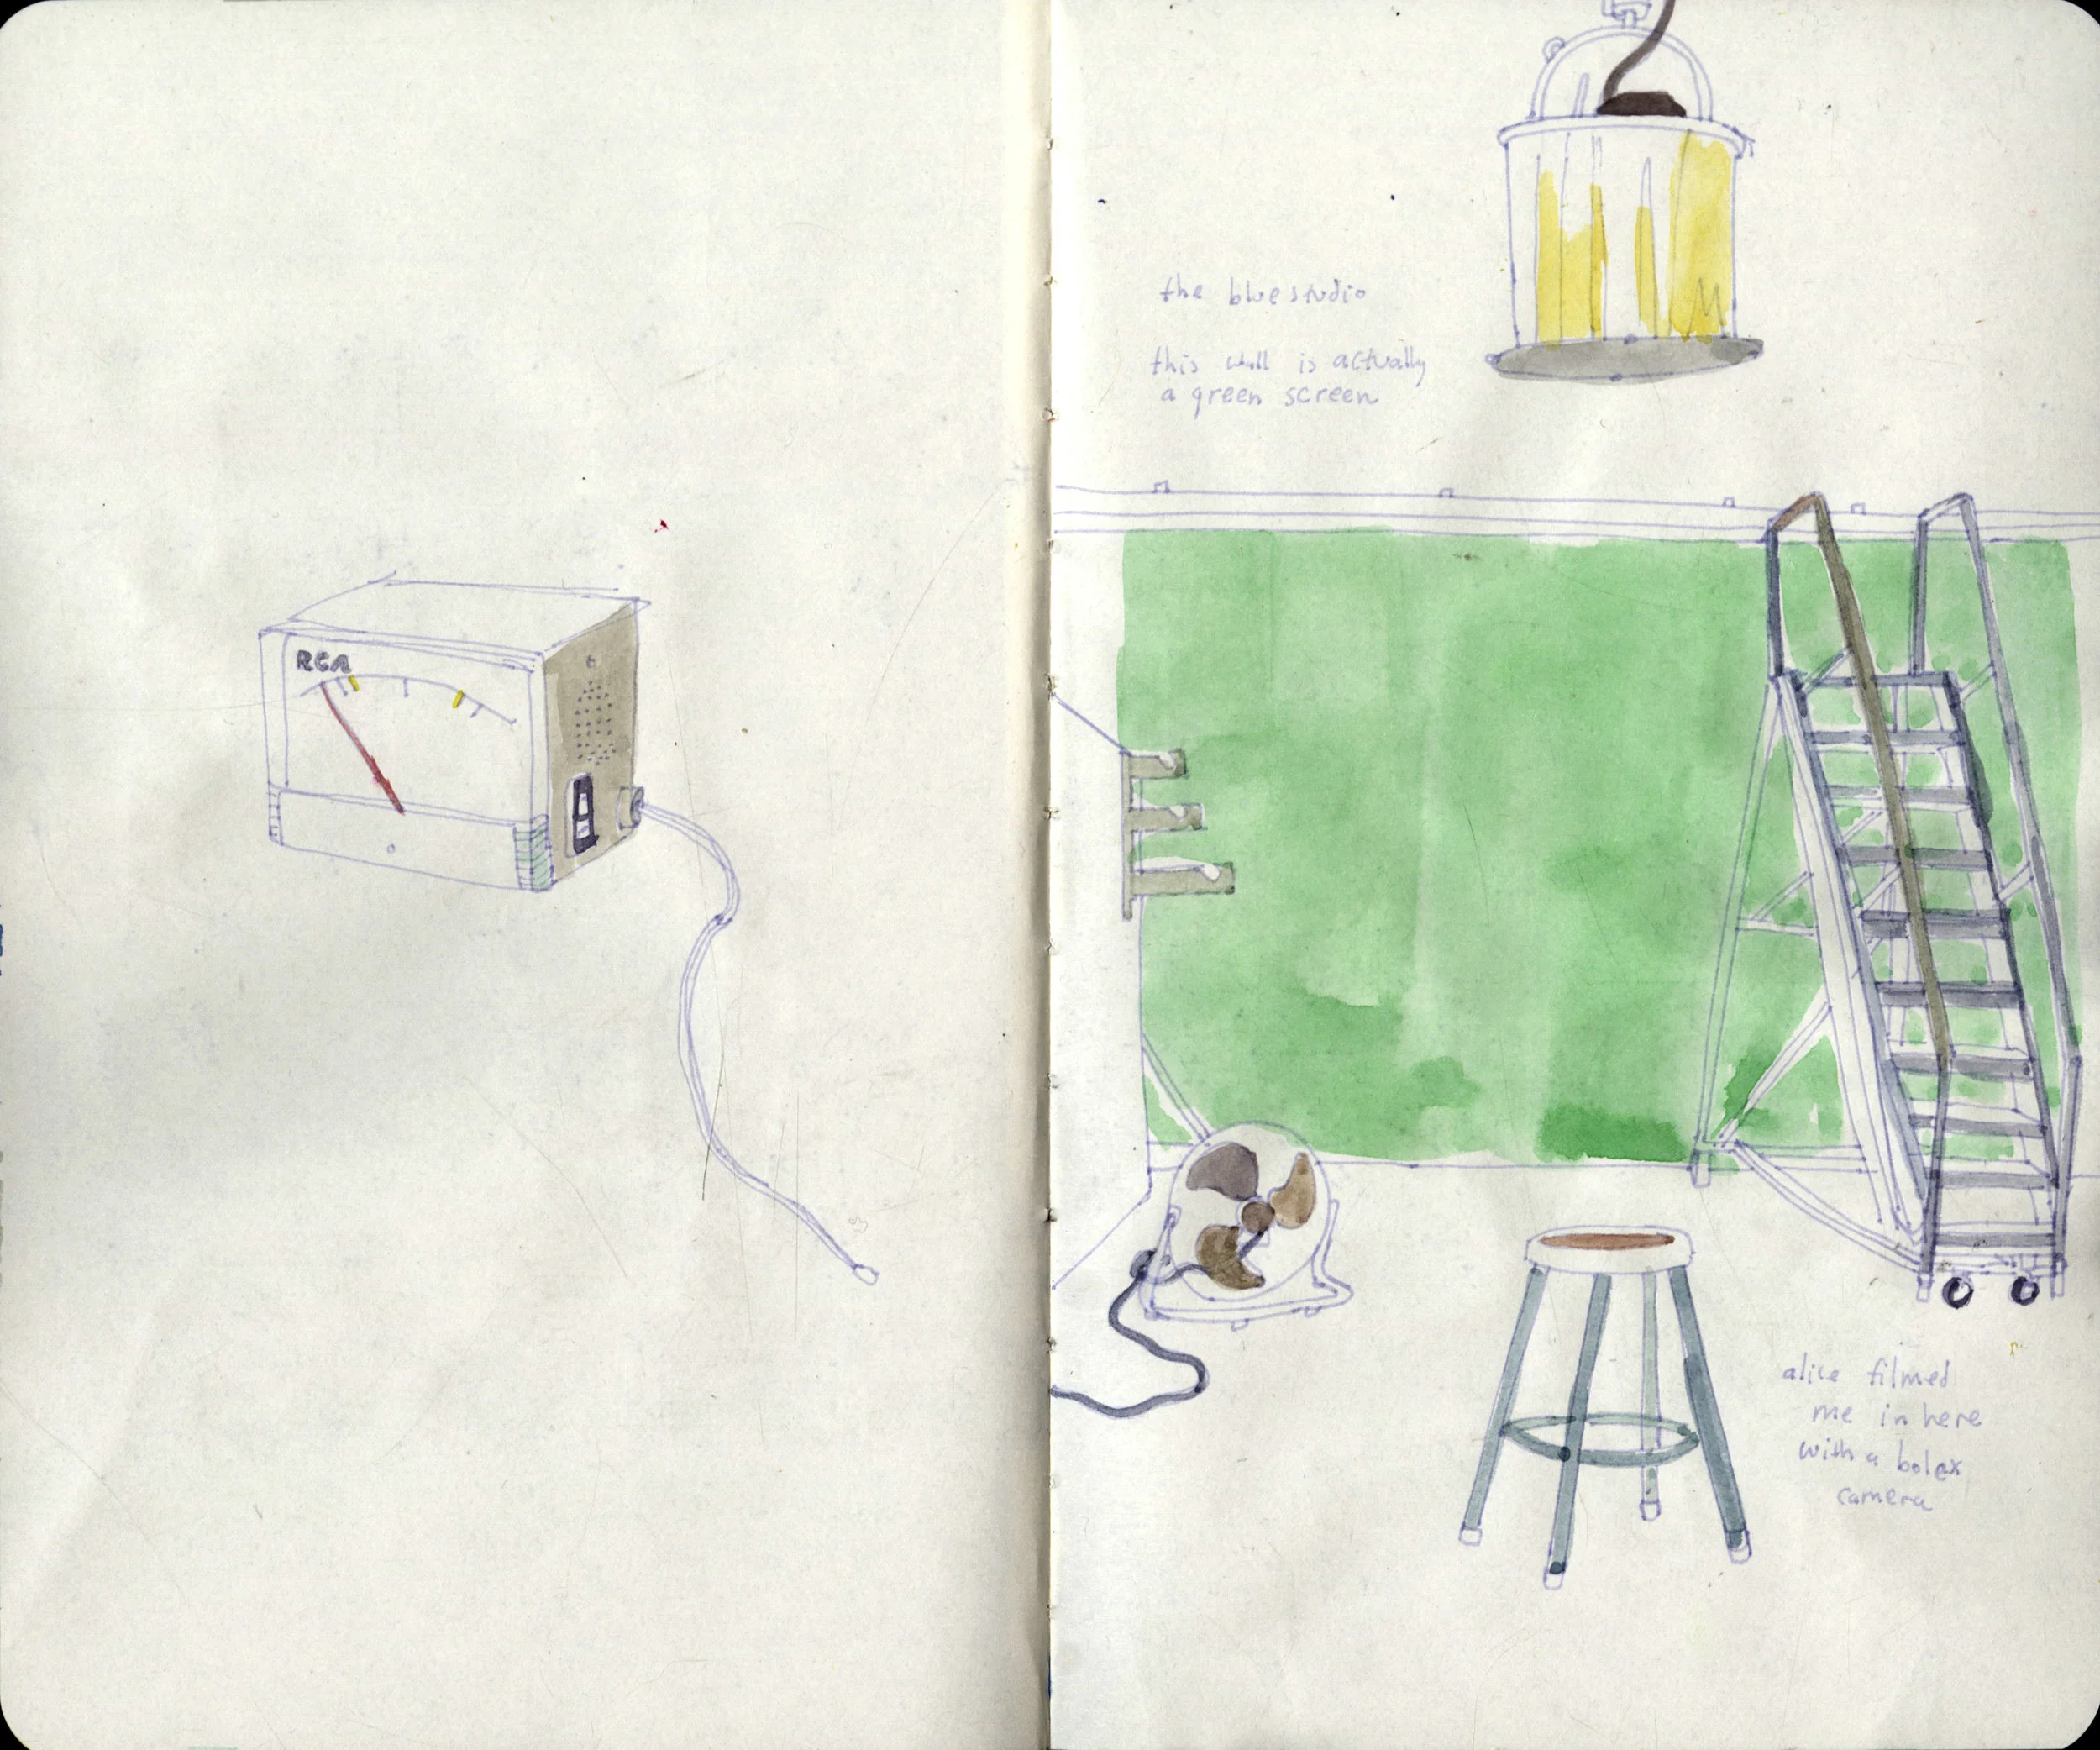 RCA
the blue studio
this wall is actually
a green screen
alice filmed
me in here
with a bolex
camera